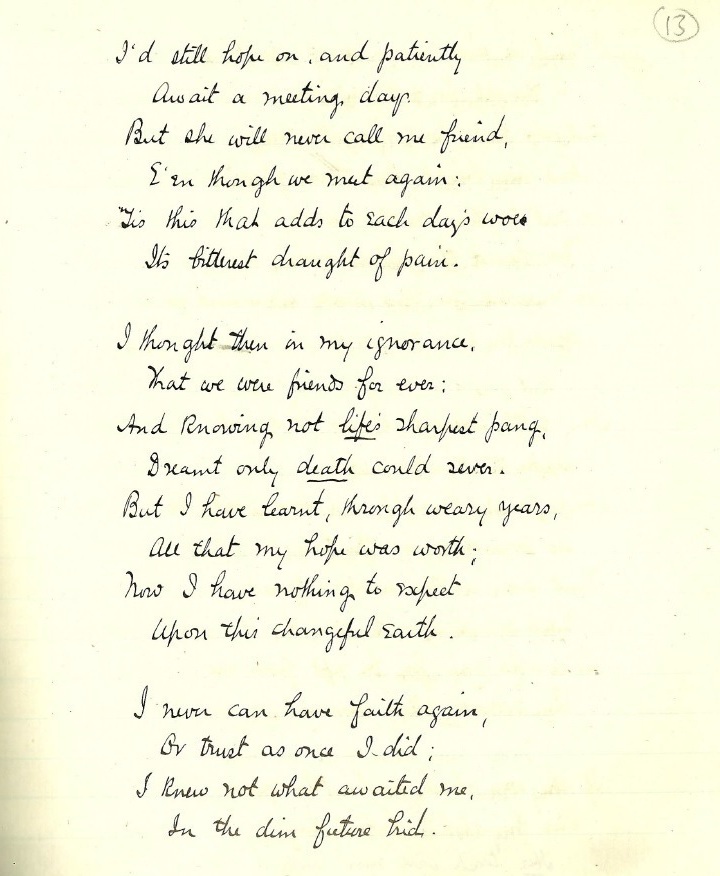 13
I'd still hope on, and patiently
Await a meeting day.
But she will never call me friend,
E'en though we meet again:
'Tis this that adds to each day's woes
Its bitterest draught of pain.
I thought then in my ignorance,
That we were friends for ever:
And knowing not life's sharpest pang,
Dreamt only death could sever.
But I have learnt, through weary years,
All that my hope was worth;
Now I have nothing to expect
Upon this changeful Earth.
I never can have faith again,
Or trust as once I did;
I knew not what awaited me,
In the dim future hid.